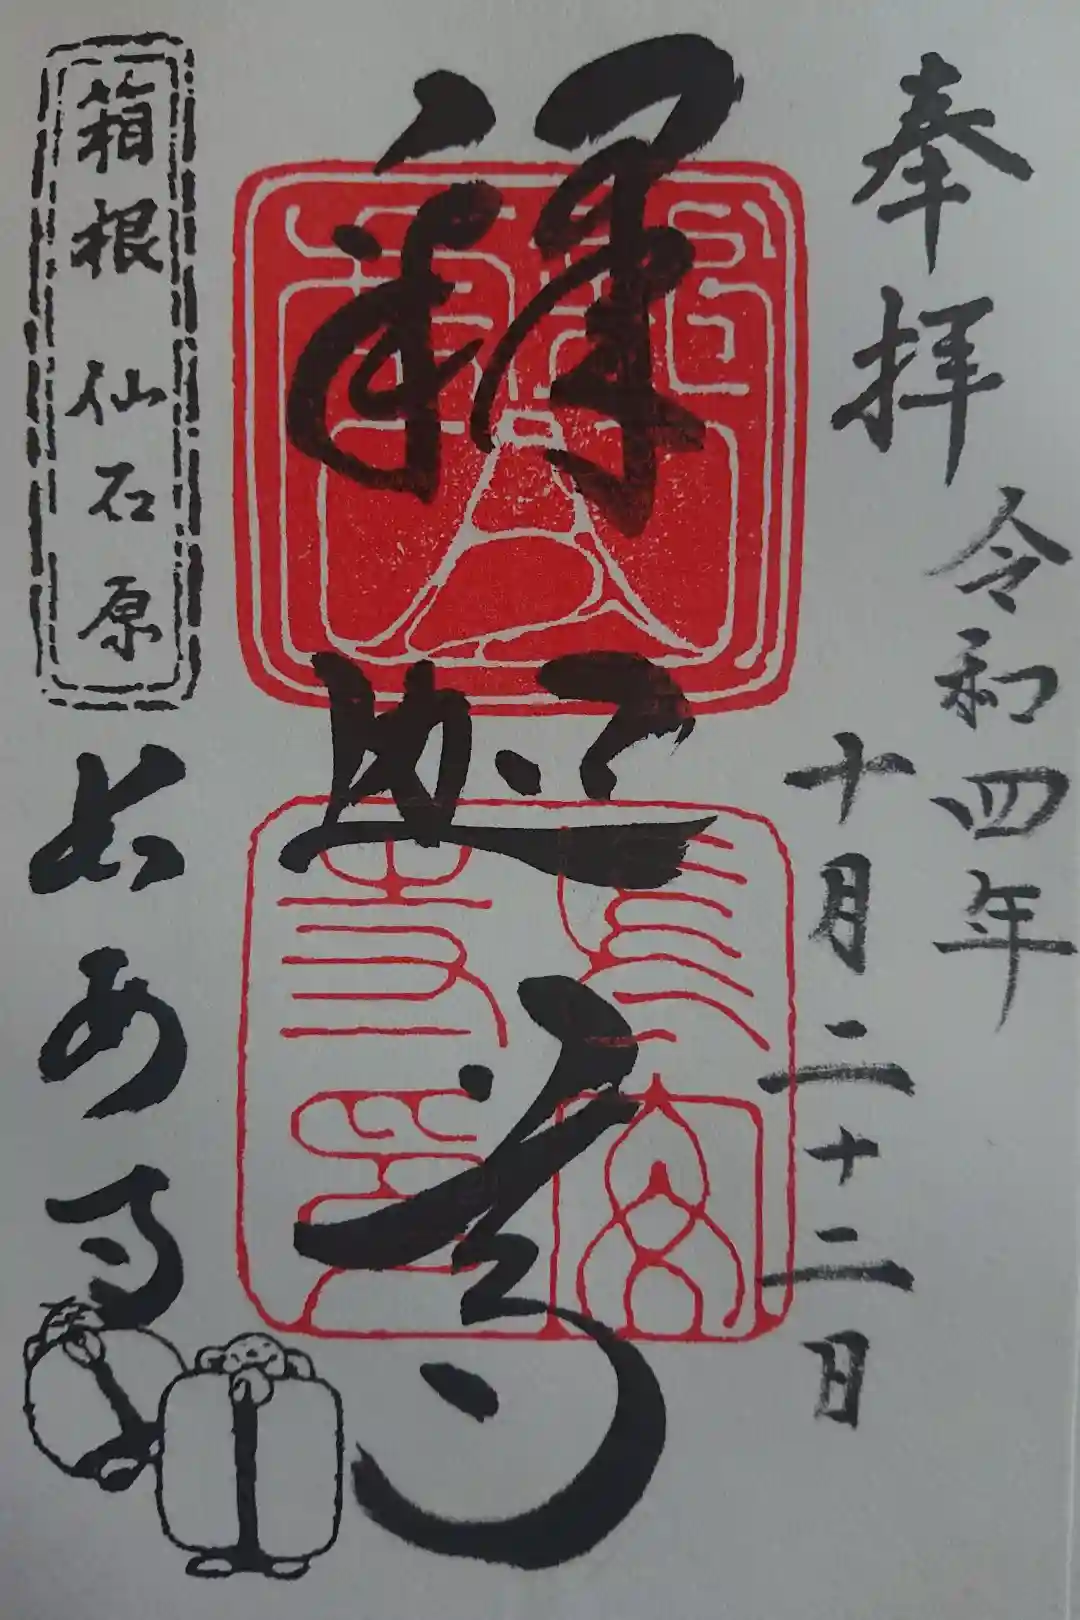 奉拝
令和四年
十月二十二日
釋迦尊
箱根 仙石原
長安寺
長安寺印